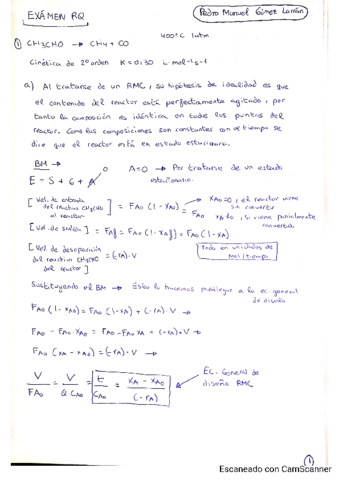 EXÁMEN RQ
Pedro Manuel Gómez Larrán
400ºC 1atm
① CH3CHO → CH4 + CO
Cinética de 2º orden K = 0'30 L·mol-1 s-1
a) Al tratarse de un RMC, su hipótesis de idealidad es que
el contenido del reactor está perfectamente agitado, por
tanto la composición es idéntica en todos los puntos del
reactor. Como las composiciones son constantes con el tiempo se
dice que el reactor está en estado estacionario.
BM → E - S + G = A 0 A=0 → Por tratarse de un estado
estacionario.
[Vel. de entrada del reactivo CH3CHO al reactor] = FA0 (1 - XA0) = FA0 XA0 = 0, el reactivo viene sin convertir
XA≠0, si viene parcialmente convertido
[Vel. de salida] = FAf = FA0 (1 - XAf) = FA0 (1 - XA)
[Vel. de desaparición del reactivo CH3CHO del reactor] = (-rA)·V
Todo en unidades de mol/tiempo
Sustituyendo el BM → Esto lo hacemos para llegar a la ec general
de diseño
FA0 (1 - XA0) = FA0 (1 - XA) + (-rA)·V →
FA0 - FA0·XA0 = FA0 - FA0 XA + (-rA)·V →
FA0 (XA - XA0) = (-rA)·V →
V/FA0 = V/(Q CA0) = t/CA0 = (XA - XA0)/(-rA)
EC. General de
diseño RMC
1
Escaneado con CamScanner